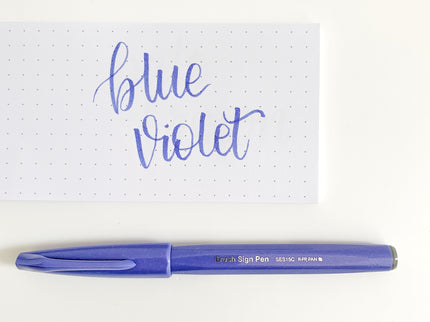 blue
violet
Brush Sign Pen SES15C